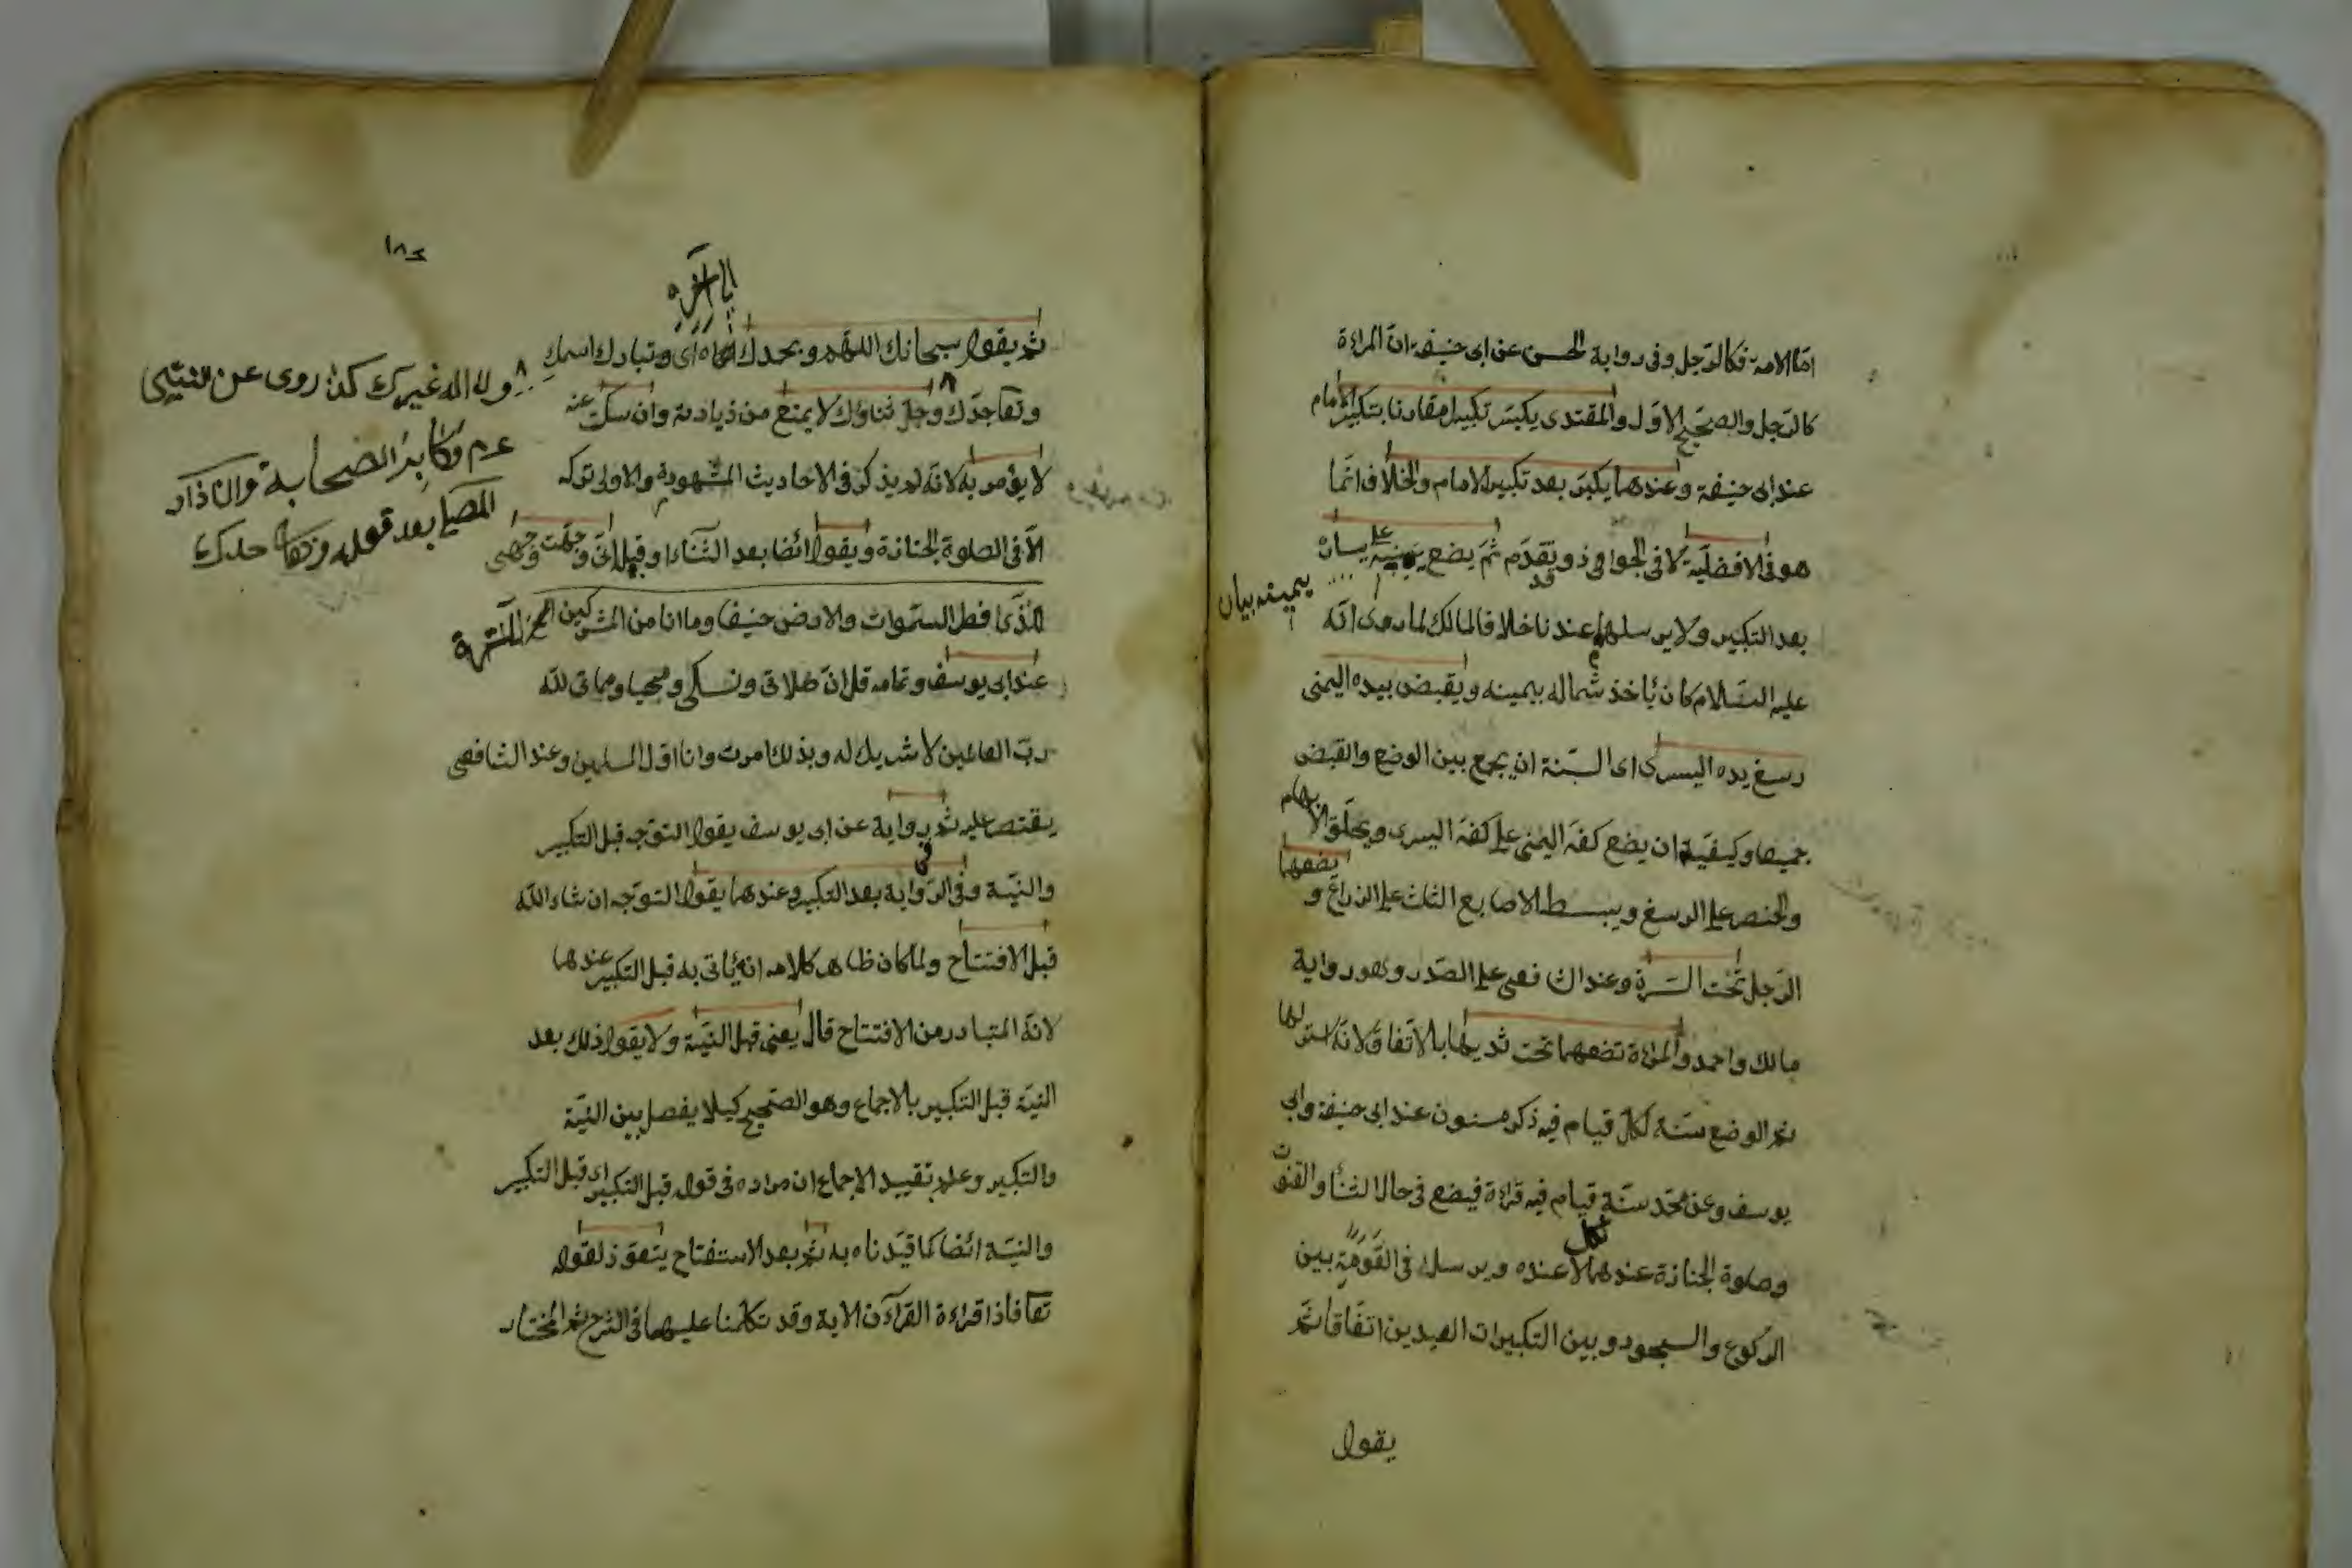 اما الامة فكالرجل وفى رواية الحسن عن ابى حنيفة ان المراءة
كالرجل والصحيح الاول والمقتدى يكبر تكبيرا مقارنا بتكبير الامام
عند ابى حنيفة وعندهما يكبر بعد تكبير الامام والخلاف انما
هو فى الافضلية لا فى الجواز وقد تقدم ثم يضع يمينه على يساره
بعد التكبير ولا يرسلهما عندنا خلافا لمالك لما روى انه
عليه السلام كان ياخذ شماله بيمينه ويقبض بيده اليمنى
رسغ يده اليسرى اى السنة ان يجمع بين الوضع والقبض
جميعا وكيفية ان يضع كفه اليمنى على كفه اليسرى ويحلق الابهام
والخنصر على الرسغ ويبسط الاصابع الثلث على الذراع و يضعهما
الرجل تحت السرة وعند الشافعى على الصدر وهو رواية
مالك واحمد والمراءة تضعهما تحت ثديها بالاتفاق لانه استر لها
ثم الوضع سنة لكل قيام فيه ذكر مسنون عند ابى حنيفة وابى
يوسف وعن محمد سنة قيام فيه قراءة فيضع فى حال الثناء والقنوت
وصلوة الجنازة عندهما لا عنده ويرسل فى القومة بين
الركوع والسجود وبين التكبيرات العيدين اتفاقا ثم
يقول
١٨٢
الى آخره
ثم يقول سبحانك اللهم وبحمدك اى وتبارك اسمك
وتعا جدك وجل ثناؤك لا يمنع من زيادته وان سكت عنه
لا يؤمر به لانه لم يذكر فى الاحاديث المشهورة والاولى تركه
الا فى الصلوة الجنازة ويقول ائضا بعد الثناء او قبل انى وجهت وجهى
للذى فطر السموات والارض حنيفا وما انا من المشركين
عند ابى يوسف وتمامه قل ان صلاتى ونسكى ومحيا ومماتى لله
رب العالمين لا شريك له وبذلك امرت وانا اول المسلمين وعند الشافعى
يقتصر عليه ثم برواية عن ابى يوسف يقول التوجه قبل التكبير
والنية وفى الرواية بعد التكبير وعندهما يقول التوجه ان شاء الله
قبل الافتتاح ولما كان ظاهر كلامه انه ياتى به قبل التكبير عندهما
لانه المتبادر من الافتتاح قال يعنى قبل النية ولا يقول ذلك بعد
النية قبل التكبير بالاجماع وهو الصحيح كيلا يفصل بين النية
والتكبير وعلم تقييد الاجماع ان مراده فى قوله قبل التكبير اى قبل التكبير
والنية ائضا كما قيدناه به ثم بعد الاستفتاح يتعوذ لقوله
تعا فاذا قراءة القرآن الاية وقد تكلمنا عليهما فى الشرح ثم المختار
ولا اله غيرك كذا روى عن النبى